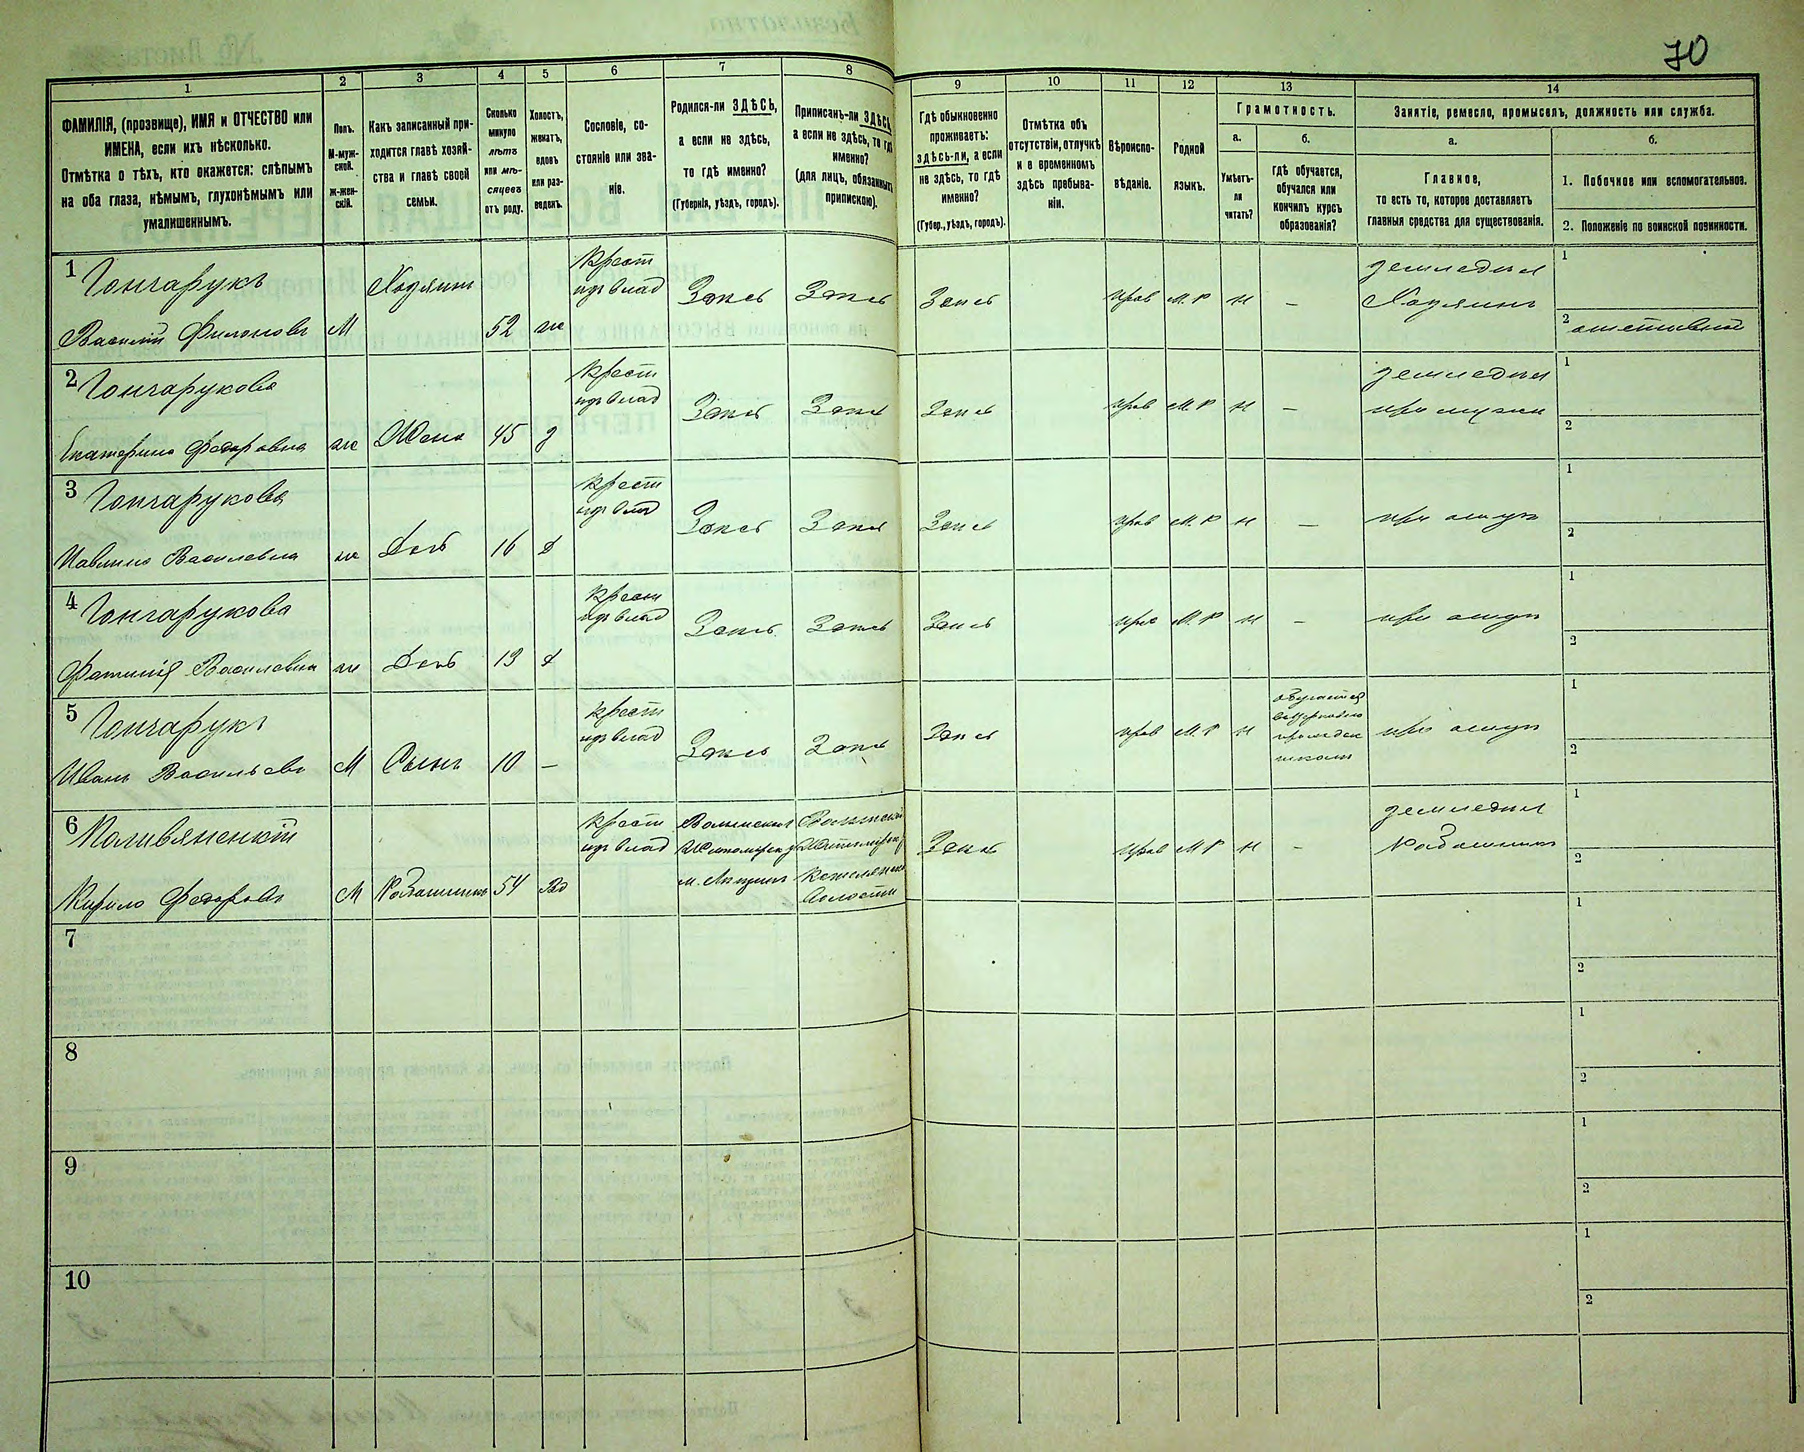 70
1
2
3
4
5
6
7
8
9
10
11
12
13
14
ФАМИЛІЯ, (прозвище), ИМЯ и ОТЧЕСТВО или
ИМЕНА, если ихъ нѣсколько.
Отмѣтка о тѣхъ, кто окажется: слѣпымъ
на оба глаза, нѣмымъ, глухонѣмымъ или
умалишеннымъ.
Полъ.
М-муж-
ской.
ж-жен-
скій.
Какъ записанный при-
ходится главѣ хозяй-
ства и главѣ своей
семьи.
Сколько
минуло
лѣтъ
или мѣ-
сяцевъ
отъ роду.
Холостъ,
женатъ,
вдовъ
или раз-
веденъ.
Сословіе, со-
стояніе или зва-
ніе.
Родился-ли ЗДѢСЬ,
а если не здѣсь,
то гдѣ именно?
(Губернія, уѣздъ, городъ).
Приписанъ-ли ЗДѢСЬ,
а если не здѣсь, то гдѣ
именно?
(для лицъ, обязанныхъ
припискою).
Гдѣ обыкновенно
проживаетъ:
здѣсь-ли, а если
не здѣсь, то гдѣ
именно?
(Губер., уѣздъ, городъ).
Отмѣтка объ
отсутствіи, отлучкѣ
и о временномъ
здѣсь пребыва-
ніи.
Вѣроиспо-
вѣданіе.
Родной
языкъ.
Грамотность.
а.
Умѣетъ-
ли
читать?
б.
Гдѣ обучается,
обучался или
кончилъ курсъ
образованія?
Занятіе, ремесло, промыселъ, должность или служба.
а.
Главное,
то есть то, которое доставляетъ
главныя средства для существованія.
б.
1. Побочное или вспомогательное.
2. Положеніе по воинской повинности.
1
Гончарукъ
Василій Филоновъ
М
Хозяинъ
52
ж
крест
изъ влад
Здесь
Здесь
Здесь
прав
М. Р
н
–
земледел
Хозяинъ
1
2
2
Гончарукова
Екатерина Федоровна
ж
Жена
45
з
крест
изъ влад
Здесь
Здесь
Здесь
прав
М. Р
н
–
земледел
при мужи
1
2
3
Гончарукова
Василевна
ж
Дочь
16
д
крест
изъ влад
Здесь
Здесь
Здесь
прав
М. Р
н
–
при отцу
1
2
4
Гончарукова
Василевна
ж
Дочь
13
д
крест
изъ влад
Здесь
Здесь
Здесь
прав
М. Р
н
–
при отцу
1
2
5
Гончарукъ
Иванъ Васильевъ
М
Сынъ
10
–
крест
изъ влад
Здесь
Здесь
Здесь
прав
М. Р
н
обучается
школи
при отцу
1
2
6
Кирило Федоровъ
М
54
Вд
крест
изъ влад
Волынская
Волынской
волости
Здесь
прав
М Р
н
–
земледел
1
2
7
1
2
8
1
2
9
1
2
10
1
2